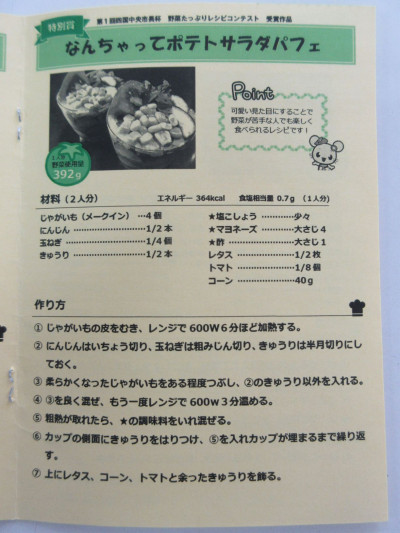 特別賞
第1回四国中央市長杯 野菜たっぷりレシピコンテスト 受賞作品
なんちゃってポテトサラダパフェ
Point
可愛い見た目にすることで
野菜が苦手な人でも楽しく
食べられるレシピです！
1人分
野菜使用量
392g
材料（２人分） エネルギー 364kcal 食塩相当量 0.7g （１人分）
じゃがいも（メークイン） …４個
にんじん ……………………1/2 本
玉ねぎ ………………………1/4 個
きゅうり ……………………1/2 本
★塩こしょう …………少々
★マヨネーズ …………大さじ４
★酢 ……………………大さじ１
レタス …………………1/2 枚
トマト …………………1/8 個
コーン …………………40ｇ
作り方
① じゃがいもの皮をむき、レンジで 600Ｗ６分ほど加熱する。
② にんじんはいちょう切り、玉ねぎは粗みじん切り、きゅうりは半月切りにし
ておく。
③ 柔らかくなったじゃがいもをある程度つぶし、②のきゅうり以外を入れる。
④ ③を良く混ぜ、もう一度レンジで 600ｗ３分温める。
⑤ 粗熱が取れたら、★の調味料をいれ混ぜる。
⑥ カップの側面にきゅうりをはりつけ、⑤を入れカップが埋まるまで繰り返
す。
⑦ 上にレタス、コーン、トマトと余ったきゅうりを飾る。